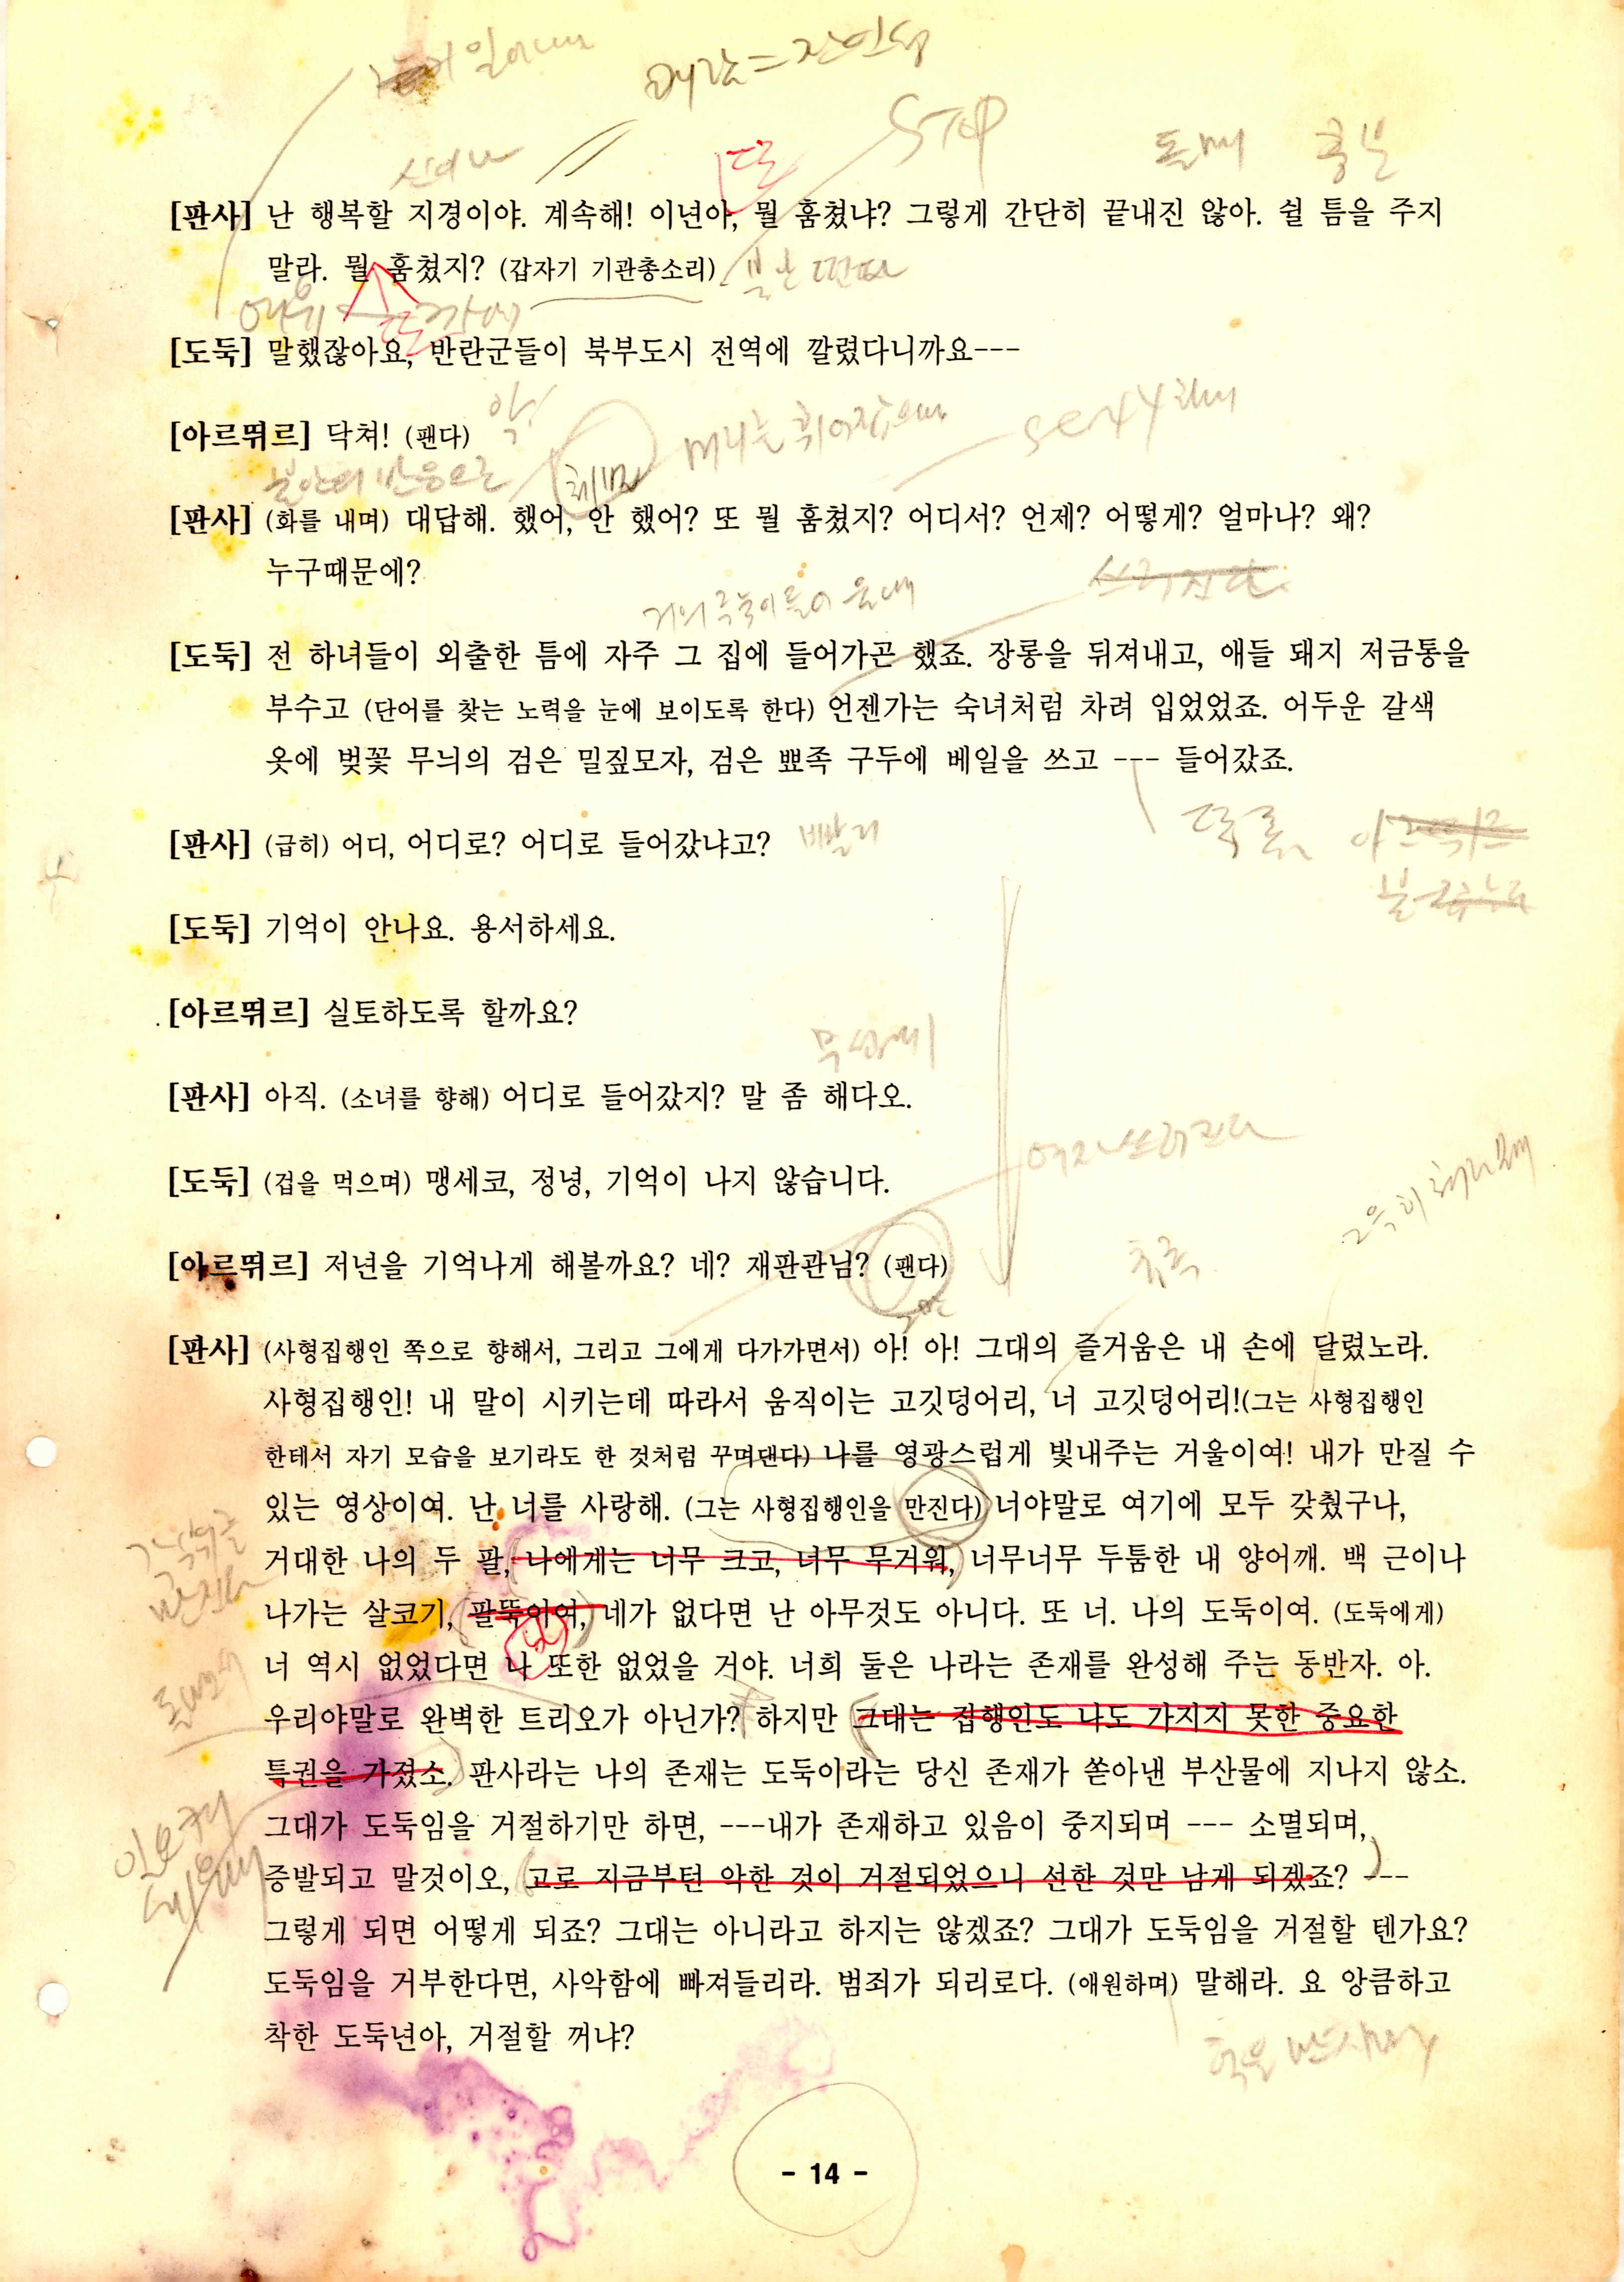 STOP
돌째 흥분
신이나
또
[판사] 난 행복할 지경이야. 계속해! 이년아, 뭘 훔쳤냐? 그렇게 간단히 끝내진 않아. 쉴 틈을 주지
말라. 뭘 훔쳤지? (갑자기 기관총소리)
[도둑] 말했잖아요, 반란군들이 북부도시 전역에 깔렸다니까요---
악!
[아르뛰르] 닥쳐! (팬다)
[판사] (화를 내며) 대답해. 했어, 안 했어? 또 뭘 훔쳤지? 어디서? 언제? 어떻게? 얼마나? 왜?
누구때문에?
[도둑] 전 하녀들이 외출한 틈에 자주 그 집에 들어가곤 했죠. 장롱을 뒤져내고, 애들 돼지 저금통을
부수고 (단어를 찾는 노력을 눈에 보이도록 한다) 언젠가는 숙녀처럼 차려 입었었죠. 어두운 갈색
옷에 벚꽃 무늬의 검은 밀짚모자, 검은 뾰족 구두에 베일을 쓰고 --- 들어갔죠.
[판사] (급히) 어디, 어디로? 어디로 들어갔냐고?
[도둑] 기억이 안나요. 용서하세요.
[아르뛰르] 실토하도록 할까요?
[판사] 아직. (소녀를 향해) 어디로 들어갔지? 말 좀 해다오.
[도둑] (겁을 먹으며) 맹세코, 정녕, 기억이 나지 않습니다.
[아르뛰르] 저년을 기억나게 해볼까요? 네? 재판관님? (팬다)
[판사] (사형집행인 쪽으로 향해서, 그리고 그에게 다가가면서) 아! 아! 그대의 즐거움은 내 손에 달렸노라.
사형집행인! 내 말이 시키는데 따라서 움직이는 고깃덩어리, 너 고깃덩어리!(그는 사형집행인
한테서 자기 모습을 보기라도 한 것처럼 꾸며댄다) 나를 영광스럽게 빛내주는 거울이여! 내가 만질 수
있는 영상이여. 난 너를 사랑해. (그는 사형집행인을 만진다) 너야말로 여기에 모두 갖췄구나,
거대한 나의 두 팔, 나에게는 너무 크고, 너무 무거워, 너무너무 두툼한 내 양어깨. 백 근이나
나가는 살코기, 팔뚝이여, 네가 없다면 난 아무것도 아니다. 또 너. 나의 도둑이여. (도둑에게)
너 역시 없었다면 나 또한 없었을 거야. 너희 둘은 나라는 존재를 완성해 주는 동반자. 아.
우리야말로 완벽한 트리오가 아닌가? 하지만 그대는 집행인도 나도 가지지 못한 중요한
특권을 가졌소. 판사라는 나의 존재는 도둑이라는 당신 존재가 쏟아낸 부산물에 지나지 않소.
그대가 도둑임을 거절하기만 하면, ---내가 존재하고 있음이 중지되며 --- 소멸되며,
증발되고 말것이오, 고로 지금부턴 악한 것이 거절되었으니 선한 것만 남게 되겠죠? ---
그렇게 되면 어떻게 되죠? 그대는 아니라고 하지는 않겠죠? 그대가 도둑임을 거절할 텐가요?
도둑임을 거부한다면, 사악함에 빠져들리라. 범죄가 되리로다. (애원하며) 말해라. 요 앙큼하고
착한 도둑년아, 거절할 꺼냐?
- 14 -